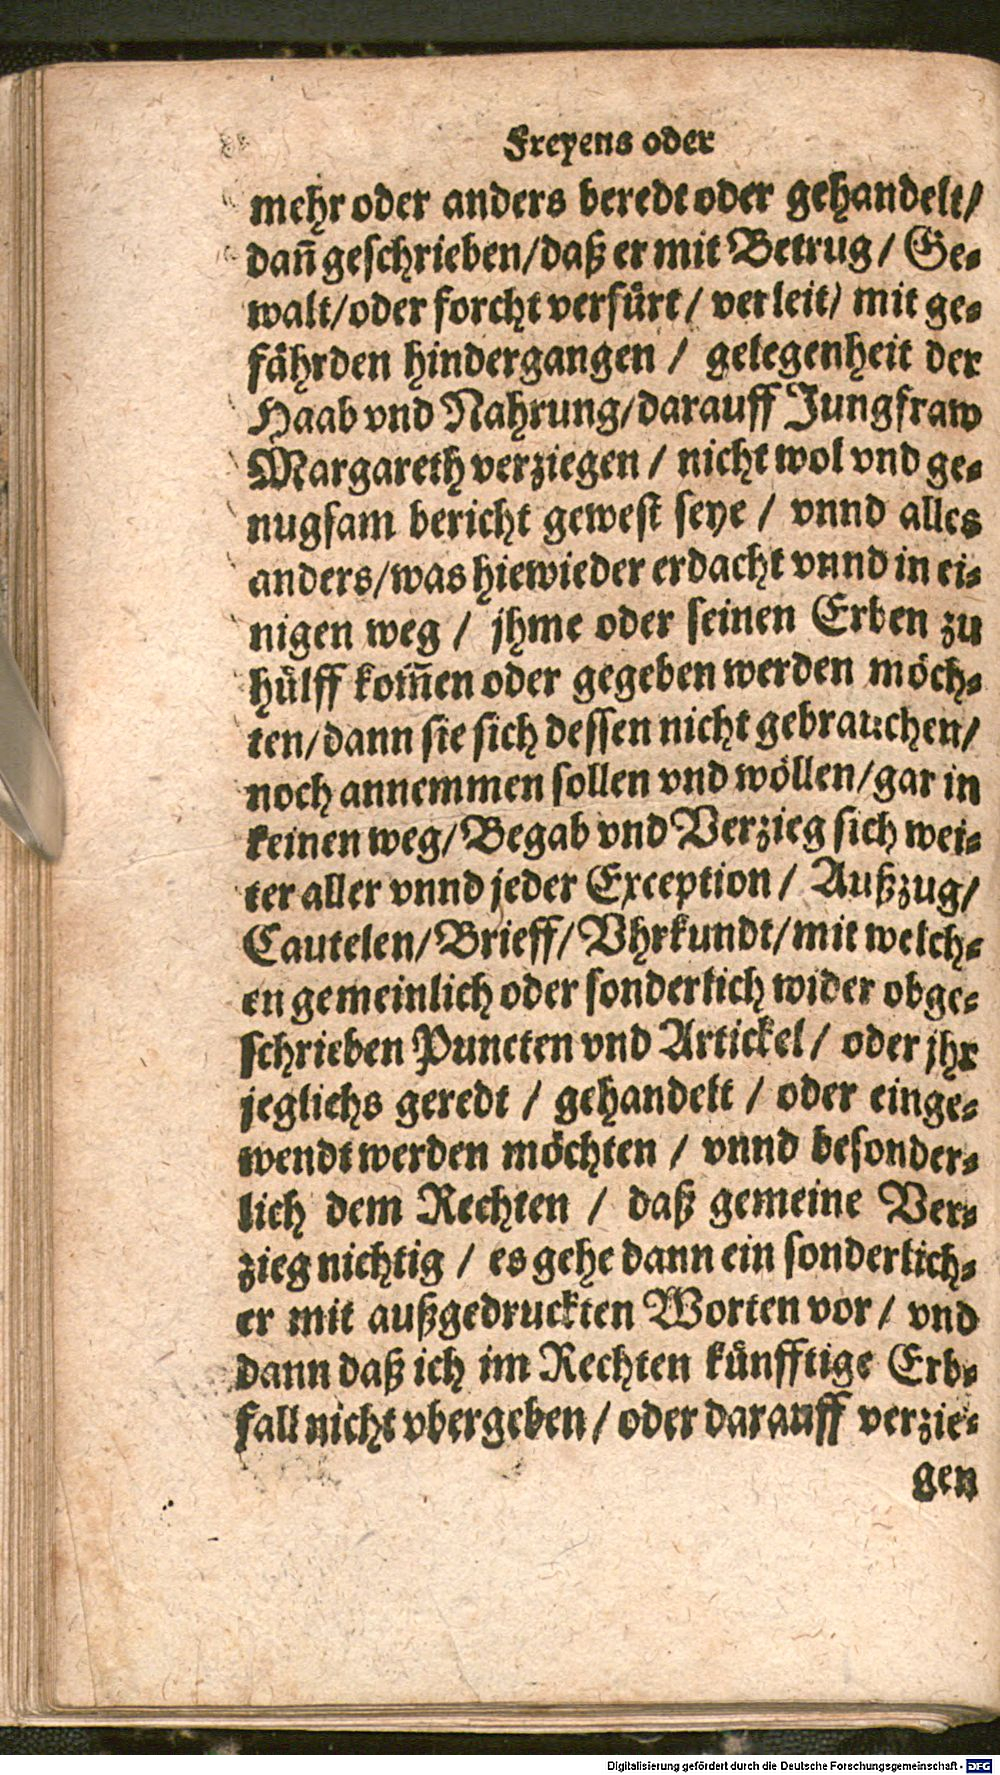 Freyens oder
mehr oder anders beredt oder gehandelt/
dañ geschrieben/daß er mit Betrug/ Ge-
walt/oder forcht verfürt/ verleit/ mit ge-
fährden hindergangen / gelegenheit der
Haab vnd Nahrung/darauff Jungfraw
Margareth verziegen / nicht wol vnd ge-
nugsam bericht gewest seye / vnnd alles
anders/was hiewieder erdacht vnnd in ei-
nigen weg / jhme oder seinen Erben zu
hülff kom̃en oder gegeben werden möch-
ten/dann sie sich dessen nicht gebrauchen/
noch annemmen sollen vnd wöllen/gar in
keinen weg/Begab vnd Verzieg sich wei-
ter aller vnnd jeder Exception/ Außzug/
Cautelen/Brieff/Vhrkundt/mit welch-
en gemeinlich oder sonderlich wider obge-
schrieben Puncten vnd Artickel/ oder jhr
jeglichs geredt / gehandelt / oder einge-
wendt werden möchten / vnnd besonder-
lich dem Rechten / daß gemeine Ver-
zieg nichtig / es gehe dann ein sonderlich-
er mit außgedruckten Worten vor/ vnd
dann daß ich im Rechten künfftige Erb-
fall nicht vbergeben/ oder darauff verzie-
gen
Digitalisierung gefördert durch die Deutsche Forschungsgemeinschaft - DFG